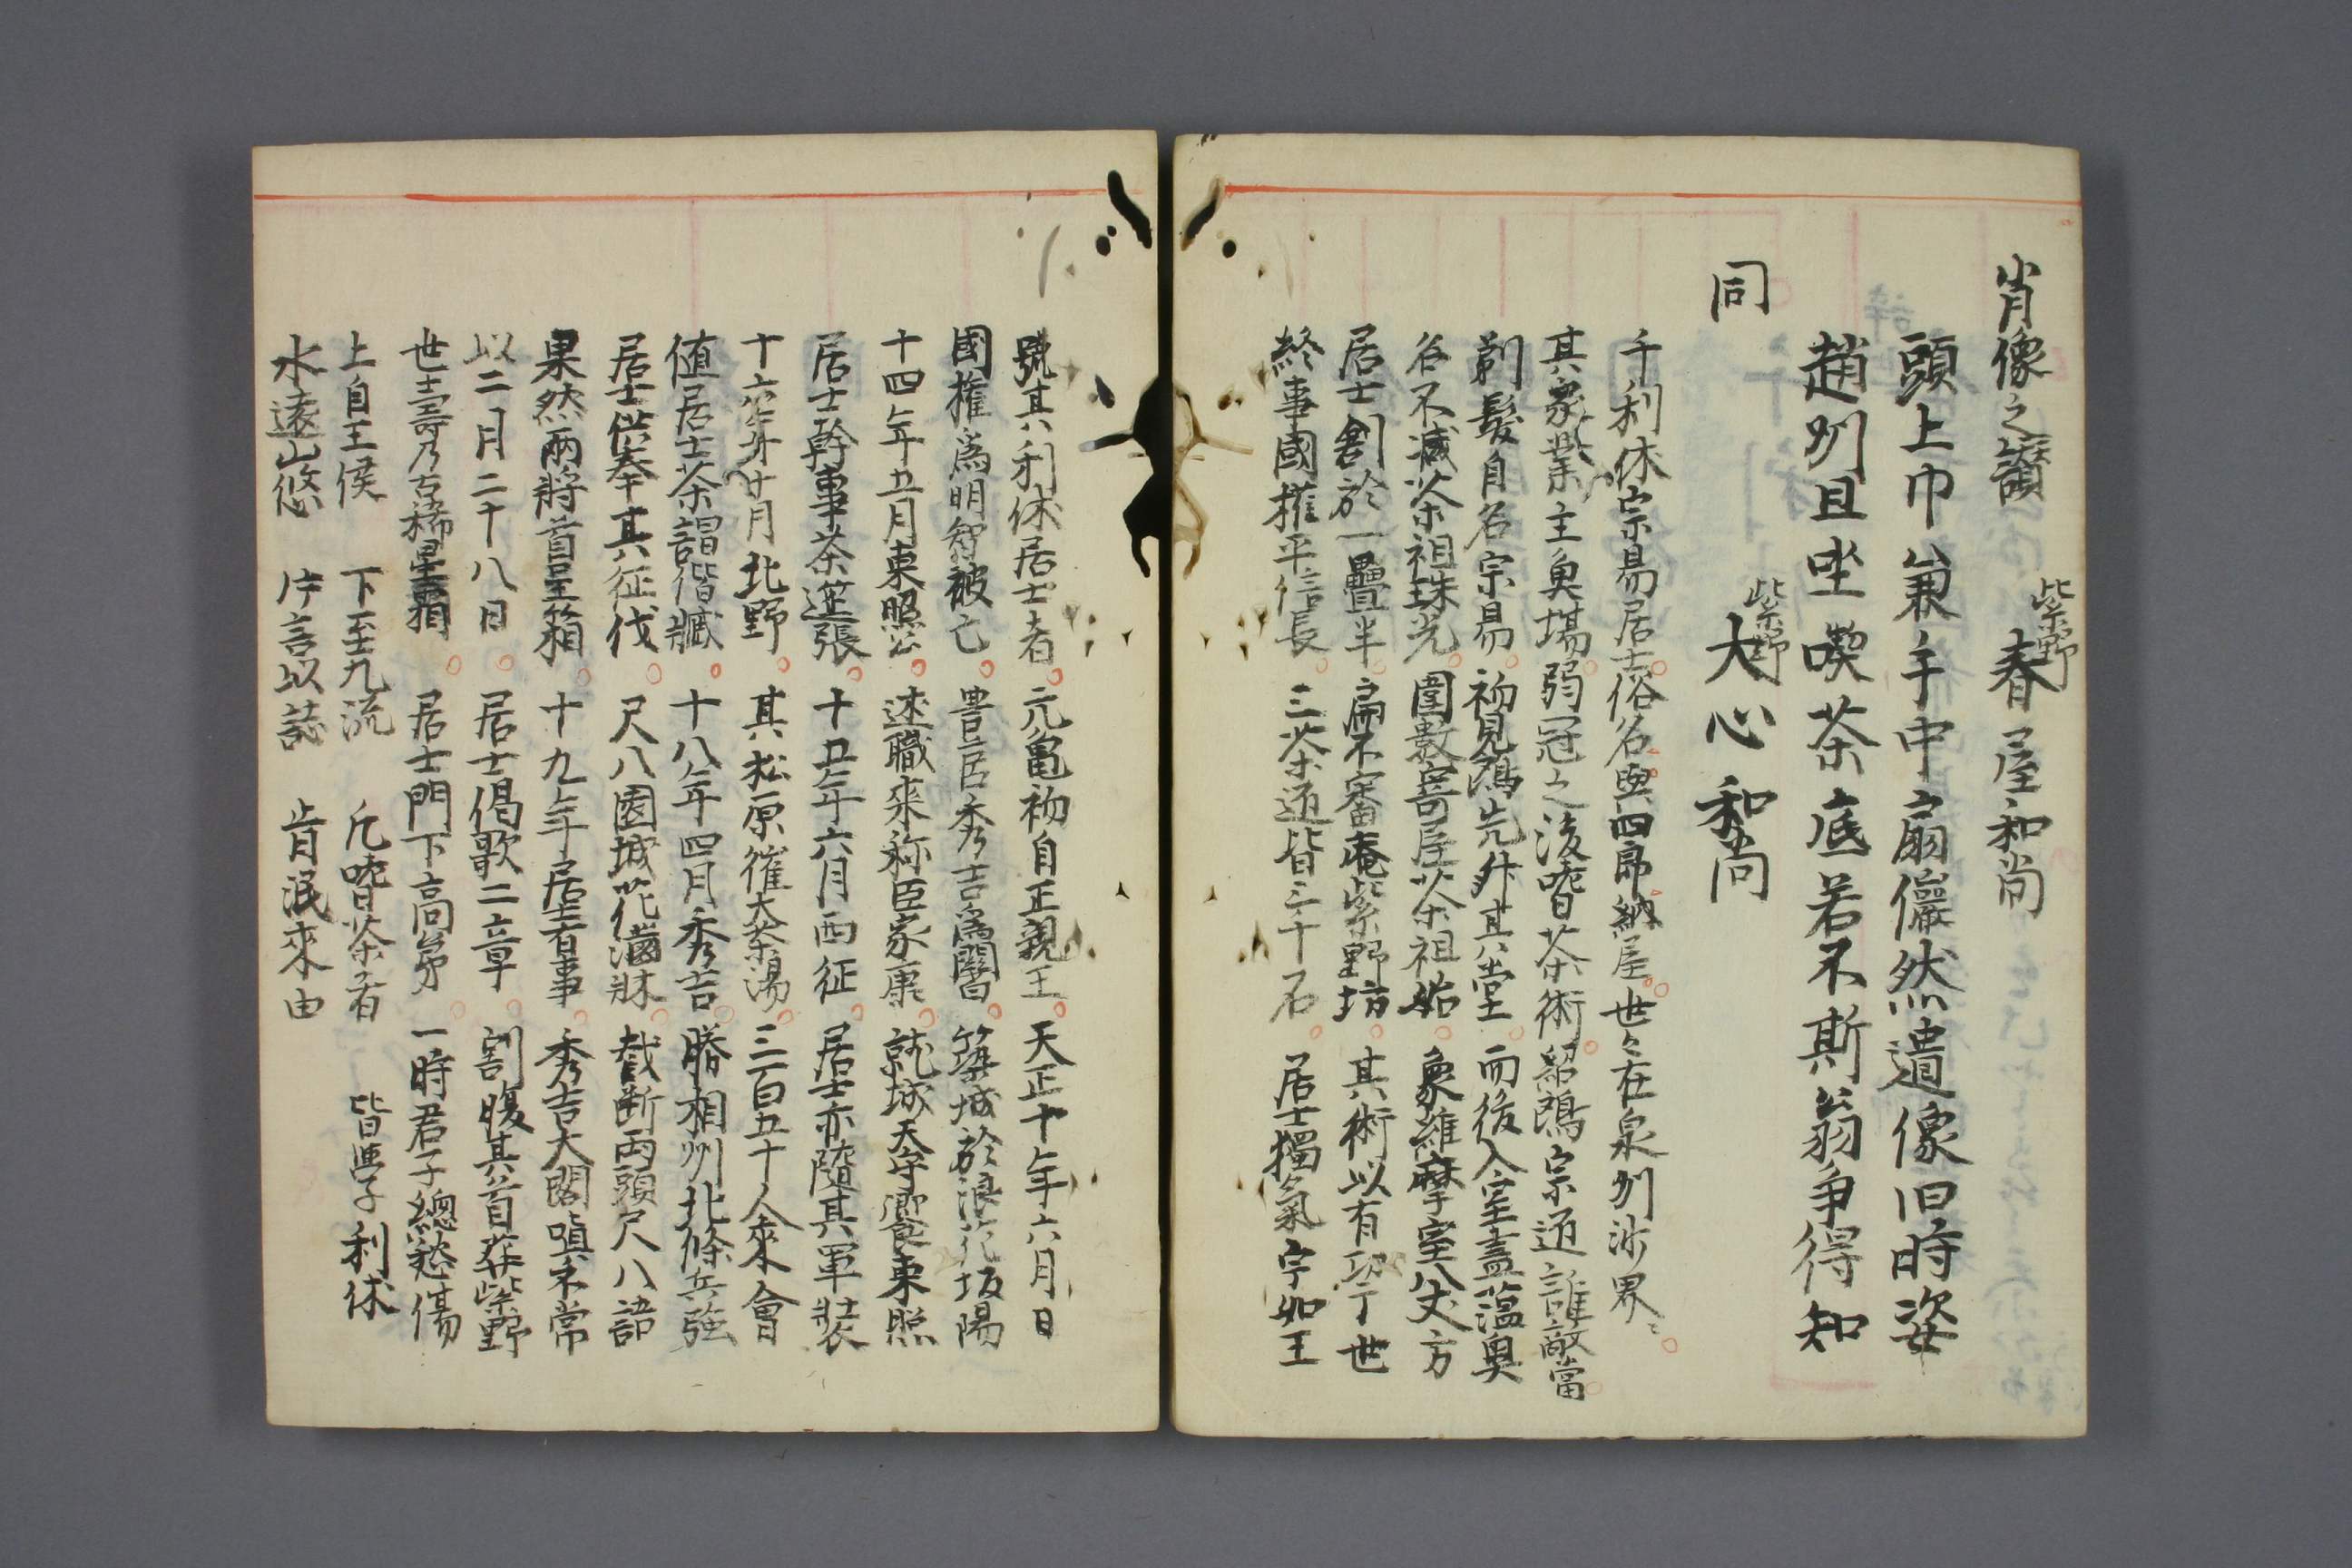 肖像之讃
紫野
春屋和尚
頭上巾兼手中扇儼然遺像旧時姿
趙州且坐喫茶底若不斯翁争得知
同
紫野
大心和尚
千利休宗易居士俗名與四郎納屋世々在泉州沙界
其家業主魚塲弱冠之後嗜茶術紹鴎宗通誰敵當
剃髮自名宗易初見鴎先舛其堂而後入室盡薀奥
名不滅茶祖珠光圍數寄屋茶祖始象維摩室丈方
居士創於一疊半扁不審庵紫野坊其術以有功于世
終事國權平信長三茶道皆三千石居士獨氣宇如王
號其利休居士者元亀初自正親王天正十年六月日
國權為明智被亡豊臣秀吉為關白築城於浪花坂陽
十四年五月東照公述職来称臣家康就城天守饗東照
居士幹事茶莚張十五年六月西征居士亦隨其軍裝
十六年廿月北野其松原催大茶湯三百五十人來會
値居士茶謂偕臧十八年四月秀吉勝相州北條兵強
居士供奉其征伐尺八園城花 截断両頭尺八語
果然兩將首呈箱十九年居士有事秀吉大閤嗔不常
以二月二十八日居士偈歌二章割腹其首在紫野
世壽乃古稀星霜居士門下高弟一時君子總愁傷
上自王侯 下至九流 凡嗜茶者 皆學子利休
水遠山悠 片言以誌 肯泯來由